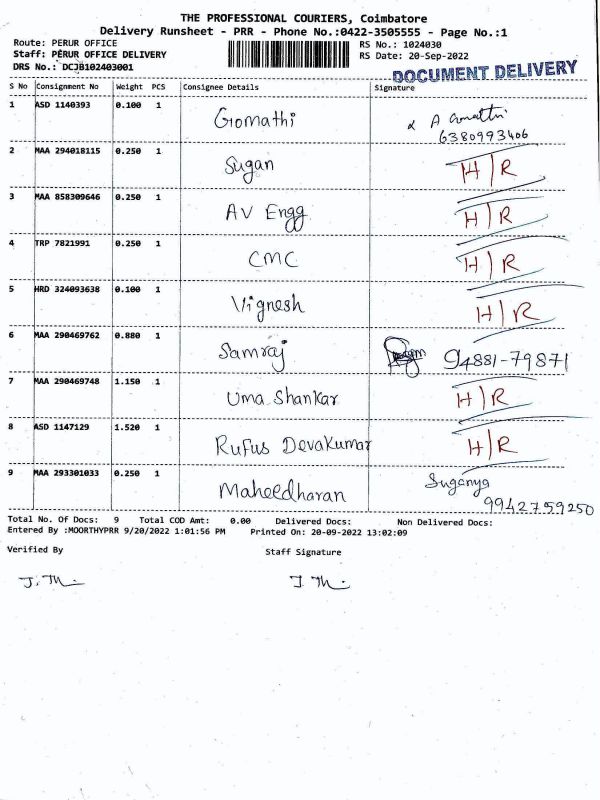 THE PROFESSIONAL COURIERS, Coimbatore
Delivery Runsheet - PRR - Phone No.:0422-3505555 - Page No.:1
Route: PERUR OFFICE
RS No.: 1024030
Staff: PERUR OFFICE DELIVERY
RS Date: 20-Sep-2022
DRS No.: DCJB102403001
DOCUMENT DELIVERY
S No Consignment No Weight PCS Consignee Details Signature
1 ASD 1140393 0.100 1 Gomathi
6380993406
2 MAA 294018115 0.250 1 Sugan H/R
3 MAA 858309646 0.250 1 AV Engg H/R
4 TRP 7821991 0.250 1 CMC H/R
5 HRD 324093638 0.100 1 Vignesh H/R
6 MAA 290469762 0.880 1 Samraj 94881-79871
7 MAA 290469748 1.150 1 Uma Shankar H/R
8 ASD 1147129 1.520 1 Rufus Devakumar H/R
9 MAA 293301033 0.250 1 Maheedharan Suganya
9942759250
Total No. Of Docs: 9 Total COD Amt: 0.00 Delivered Docs: Non Delivered Docs:
Entered By :MOORTHYPRR 9/20/2022 1:01:56 PM Printed On: 20-09-2022 13:02:09
Verified By Staff Signature